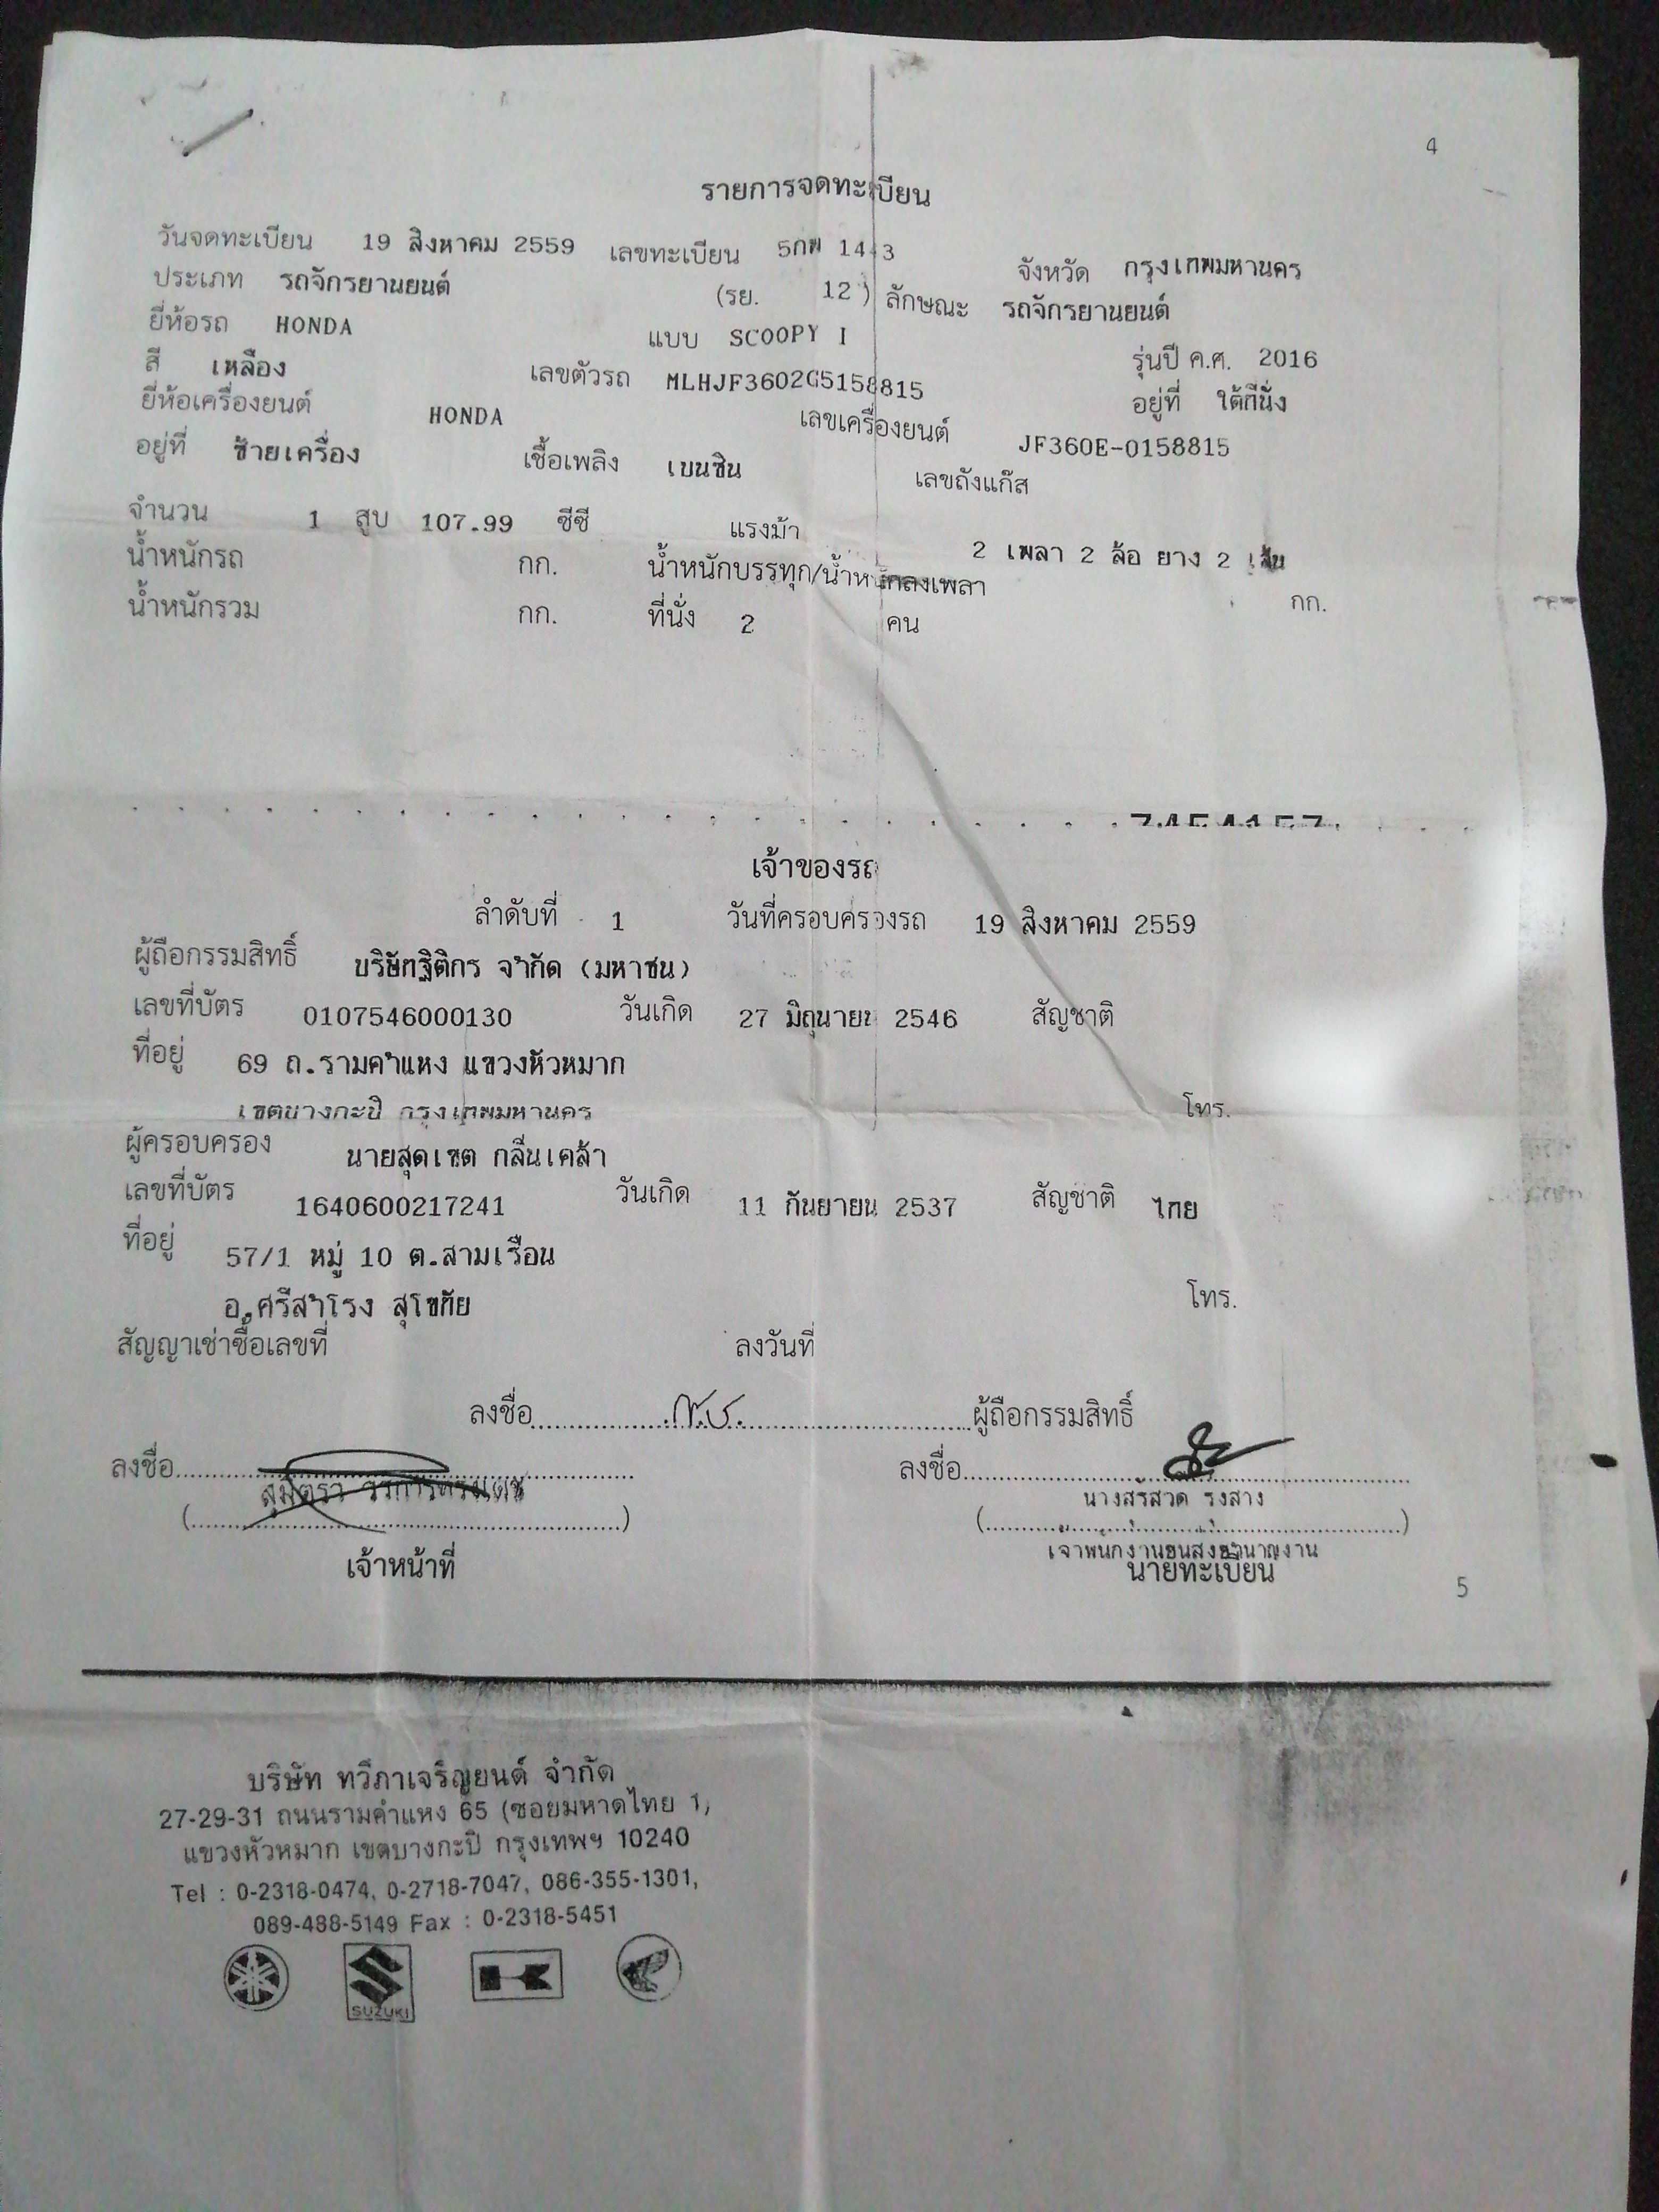 4
รายการจดทะเบียน
วันจดทะเบียน 19 สิงหาคม 2559 เลขทะเบียน 5กพ 14 3 จังหวัด กรุงเทพมหานคร
ประเภท รถจักรยานยนต์ (รย. 12 ) ลักษณะ รถจักรยานยนต์
ยี่ห้อรถ HONDA แบบ SCOOPY I รุ่นปี ค.ศ. 2016
สี เหลือง เลขตัวรถ MLHJF3602G5158815 อยู่ที่ ใต้ที่นั่ง
ยี่ห้อเครื่องยนต์ HONDA เลขเครื่องยนต์ JF360E-0158815
อยู่ที่ ซ้ายเครื่อง เชื้อเพลิง เบนซิน เลขถังแก๊ส
จำนวน 1 สูบ 107.99 ซีซี แรงม้า 2 เพลา 2 ล้อ ยาง 2 เส้น
น้ำหนักรถ กก. น้ำหนักบรรทุก/น้ำหนักลงเพลา กก.
น้ำหนักรวม กก. ที่นั่ง 2 คน
เจ้าของรถ
ลำดับที่ 1 วันที่ครอบครองรถ 19 สิงหาคม 2559
ผู้ถือกรรมสิทธิ์ บริษัทฐิติกร จำกัด (มหาชน)
เลขที่บัตร 0107546000130 วันเกิด 27 มิถุนายน 2546 สัญชาติ
ที่อยู่ 69 ถ.รามคำแหง แขวงหัวหมาก
เขตบางกะปิ กรุงเทพมหานคร โทร.
ผู้ครอบครอง นายสุดเขต กลิ่นเคล้า
เลขที่บัตร 1640600217241 วันเกิด 11 กันยายน 2537 สัญชาติ ไทย
ที่อยู่ 57/1 หมู่ 10 ต.สามเรือน
อ.ศรีสำโรง สุโขทัย โทร.
สัญญาเช่าซื้อเลขที่ ลงวันที่
ลงชื่อ ผู้ถือกรรมสิทธิ์
ลงชื่อ ลงชื่อ
สุมิตรา
เจ้าพนักงานขนส่งชำนาญงาน
เจ้าหน้าที่ นายทะเบียน
5
บริษัท ทวีภาเจริญยนต์ จำกัด
27-29-31 ถนนรามคำแหง 65 (ซอยมหาดไทย 1)
แขวงหัวหมาก เขตบางกะปิ กรุงเทพฯ 10240
Tel : 0-2318-0474, 0-2718-7047, 086-355-1301,
089-488-5149 Fax : 0-2318-5451
SUZUKI